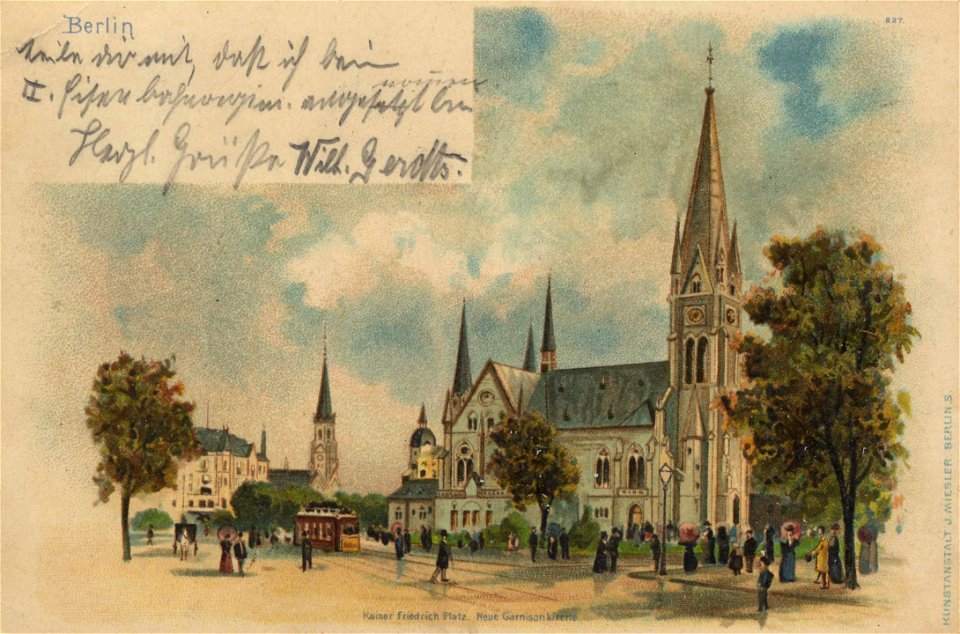 Berlin
827.
teile dir mit, daß ich bei
II. Eisenbahnregim. angenommen
Herzl. Grüße Wilh. Gerdts.
Kaiser Friedrich Platz. Neue Garnisonkirche
KUNSTANSTALT J. MIESLER. BERLIN.S.